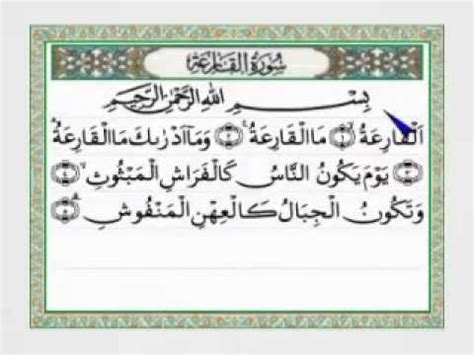 سُورَةُ الْقَارِعَةِ
بِسْمِ اللّٰهِ الرَّحْمٰنِ الرَّحِيْمِ
اَلْقَارِعَةُ ۙ﴿١﴾ مَا الْقَارِعَةُ ۚ﴿٢﴾ وَمَآ اَدْرٰىكَ مَا الْقَارِعَةُ ۗ
﴿٣﴾ يَوْمَ يَكُوْنُ النَّاسُ كَالْفَرَاشِ الْمَبْثُوْثِ ۙ﴿٤﴾
وَتَكُوْنُ الْجِبَالُ كَالْعِهْنِ الْمَنْفُوْشِ ۗ﴿٥﴾